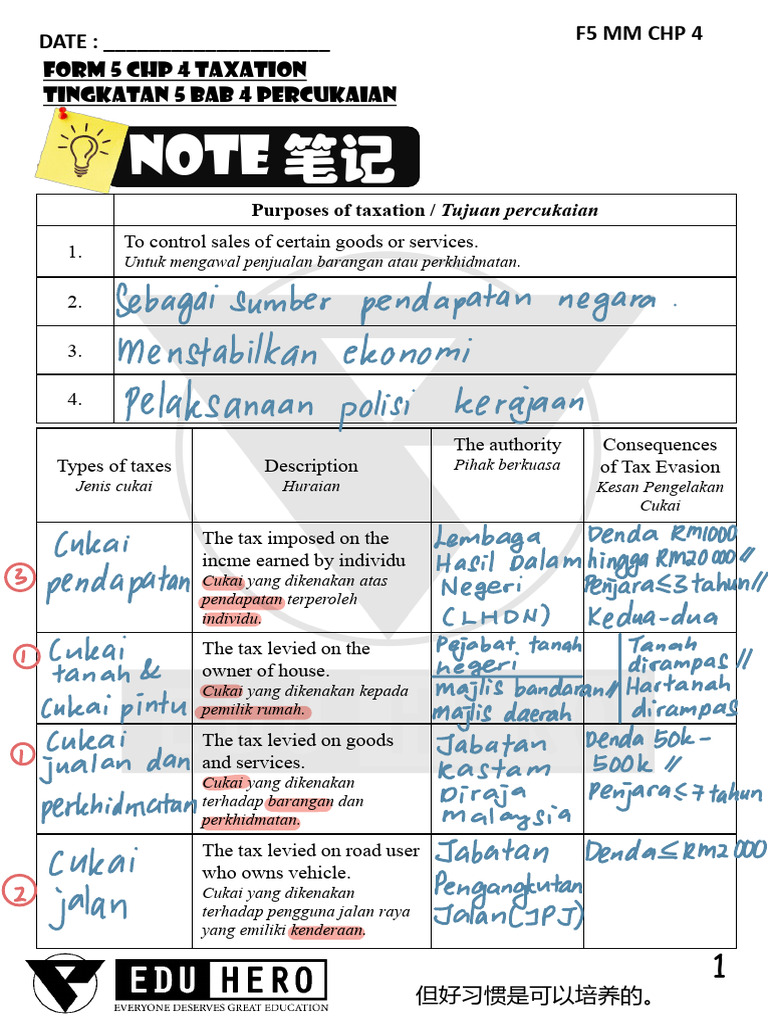 F5 MM CHP 4
DATE : ______________________
FORM 5 CHP 4 TAXATION
TINGKATAN 5 BAB 4 PERCUKAIAN
NOTE 笔记
Purposes of taxation / Tujuan percukaian
1.
To control sales of certain goods or services.
Untuk mengawal penjualan barangan atau perkhidmatan.
2.
Sebagai sumber pendapatan negara.
3.
Menstabilkan ekonomi
4.
Pelaksanaan polisi kerajaan
Types of taxes
Jenis cukai
Description
Huraian
The authority
Pihak berkuasa
Consequences
of Tax Evasion
Kesan Pengelakan
Cukai
③
Cukai
pendapatan
The tax imposed on the
incme earned by individu
Cukai yang dikenakan atas
pendapatan terperoleh
individu.
Lembaga
Hasil Dalam
Negeri
(LHDN)
Denda RM1000
hingga RM20000//
Penjara≤3 tahun//
Kedua-dua
①
Cukai
tanah &
Cukai pintu
The tax levied on the
owner of house.
Cukai yang dikenakan kepada
pemilik rumah.
Pejabat tanah
negeri
majlis bandaran//
majlis daerah
Tanah
dirampas//
Hartanah
dirampas
①
Cukai
jualan dan
perkhidmatan
The tax levied on goods
and services.
Cukai yang dikenakan
terhadap barangan dan
perkhidmatan.
Jabatan
Kastam
Diraja
Malaysia
Denda 50k-
500k //
Penjara≤7 tahun
②
Cukai
jalan
The tax levied on road user
who owns vehicle.
Cukai yang dikenakan
terhadap pengguna jalan raya
yang emiliki kenderaan.
Jabatan
Pengangkutan
Jalan(JPJ)
Denda≤RM2000
EDU HERO
EVERYONE DESERVES GREAT EDUCATION
但好习惯是可以培养的。
1